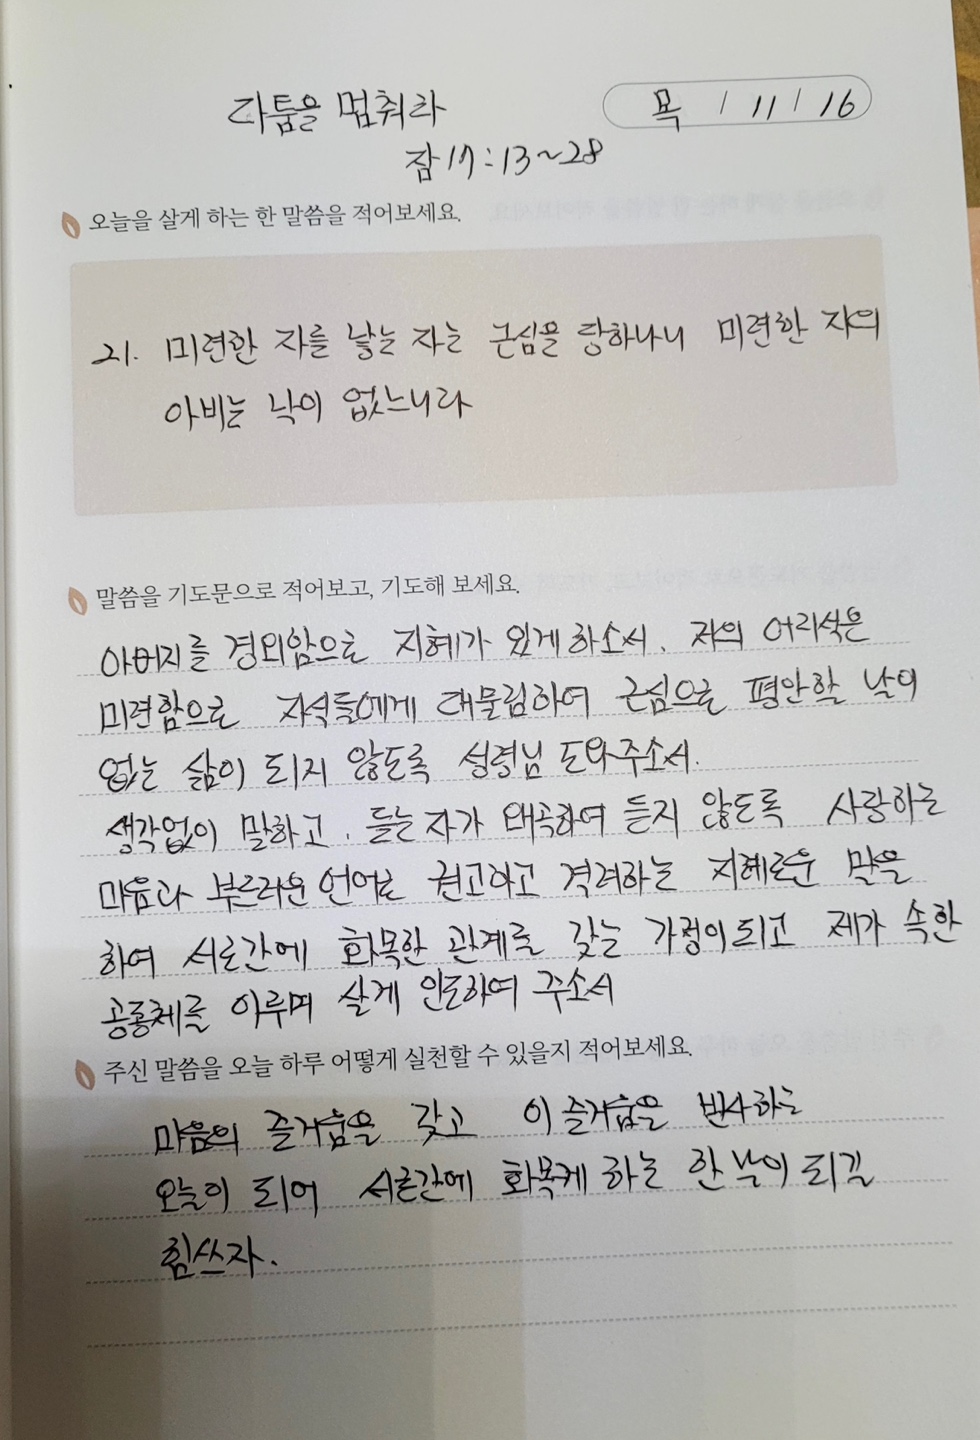 다툼을 멈춰라
목 / 11 / 16
잠 17 : 13 ~ 28
오늘을 살게 하는 한 말씀을 적어보세요.
21. 미련한 자를 낳는 자는 근심을 당하나니 미련한 자의
아비는 낙이 없느니라
말씀을 기도문으로 적어보고, 기도해 보세요.
아버지를 경외함으로 지혜가 있게 하소서. 저의 어리석은
미련함으로 자식들에게 대물림하여 근심으로 평안할 날이
없는 삶이 되지 않도록 성령님 도와주소서.
생각없이 말하고. 듣는 자가 왜곡하여 듣지 않도록 사랑하는
마음과 부드러운 언어로 권고하고 격려하는 지혜로운 말을
하여 서로간에 화목한 관계를 갖는 가정이 되고 제가 속한
공동체를 이루며 살게 인도하여 주소서
주신 말씀을 오늘 하루 어떻게 실천할 수 있을지 적어보세요.
마음의 즐거움을 갖고 이 즐거움을 반사하는
오늘이 되어 서로간에 화목케 하는 한 날이 되길
힘쓰자.